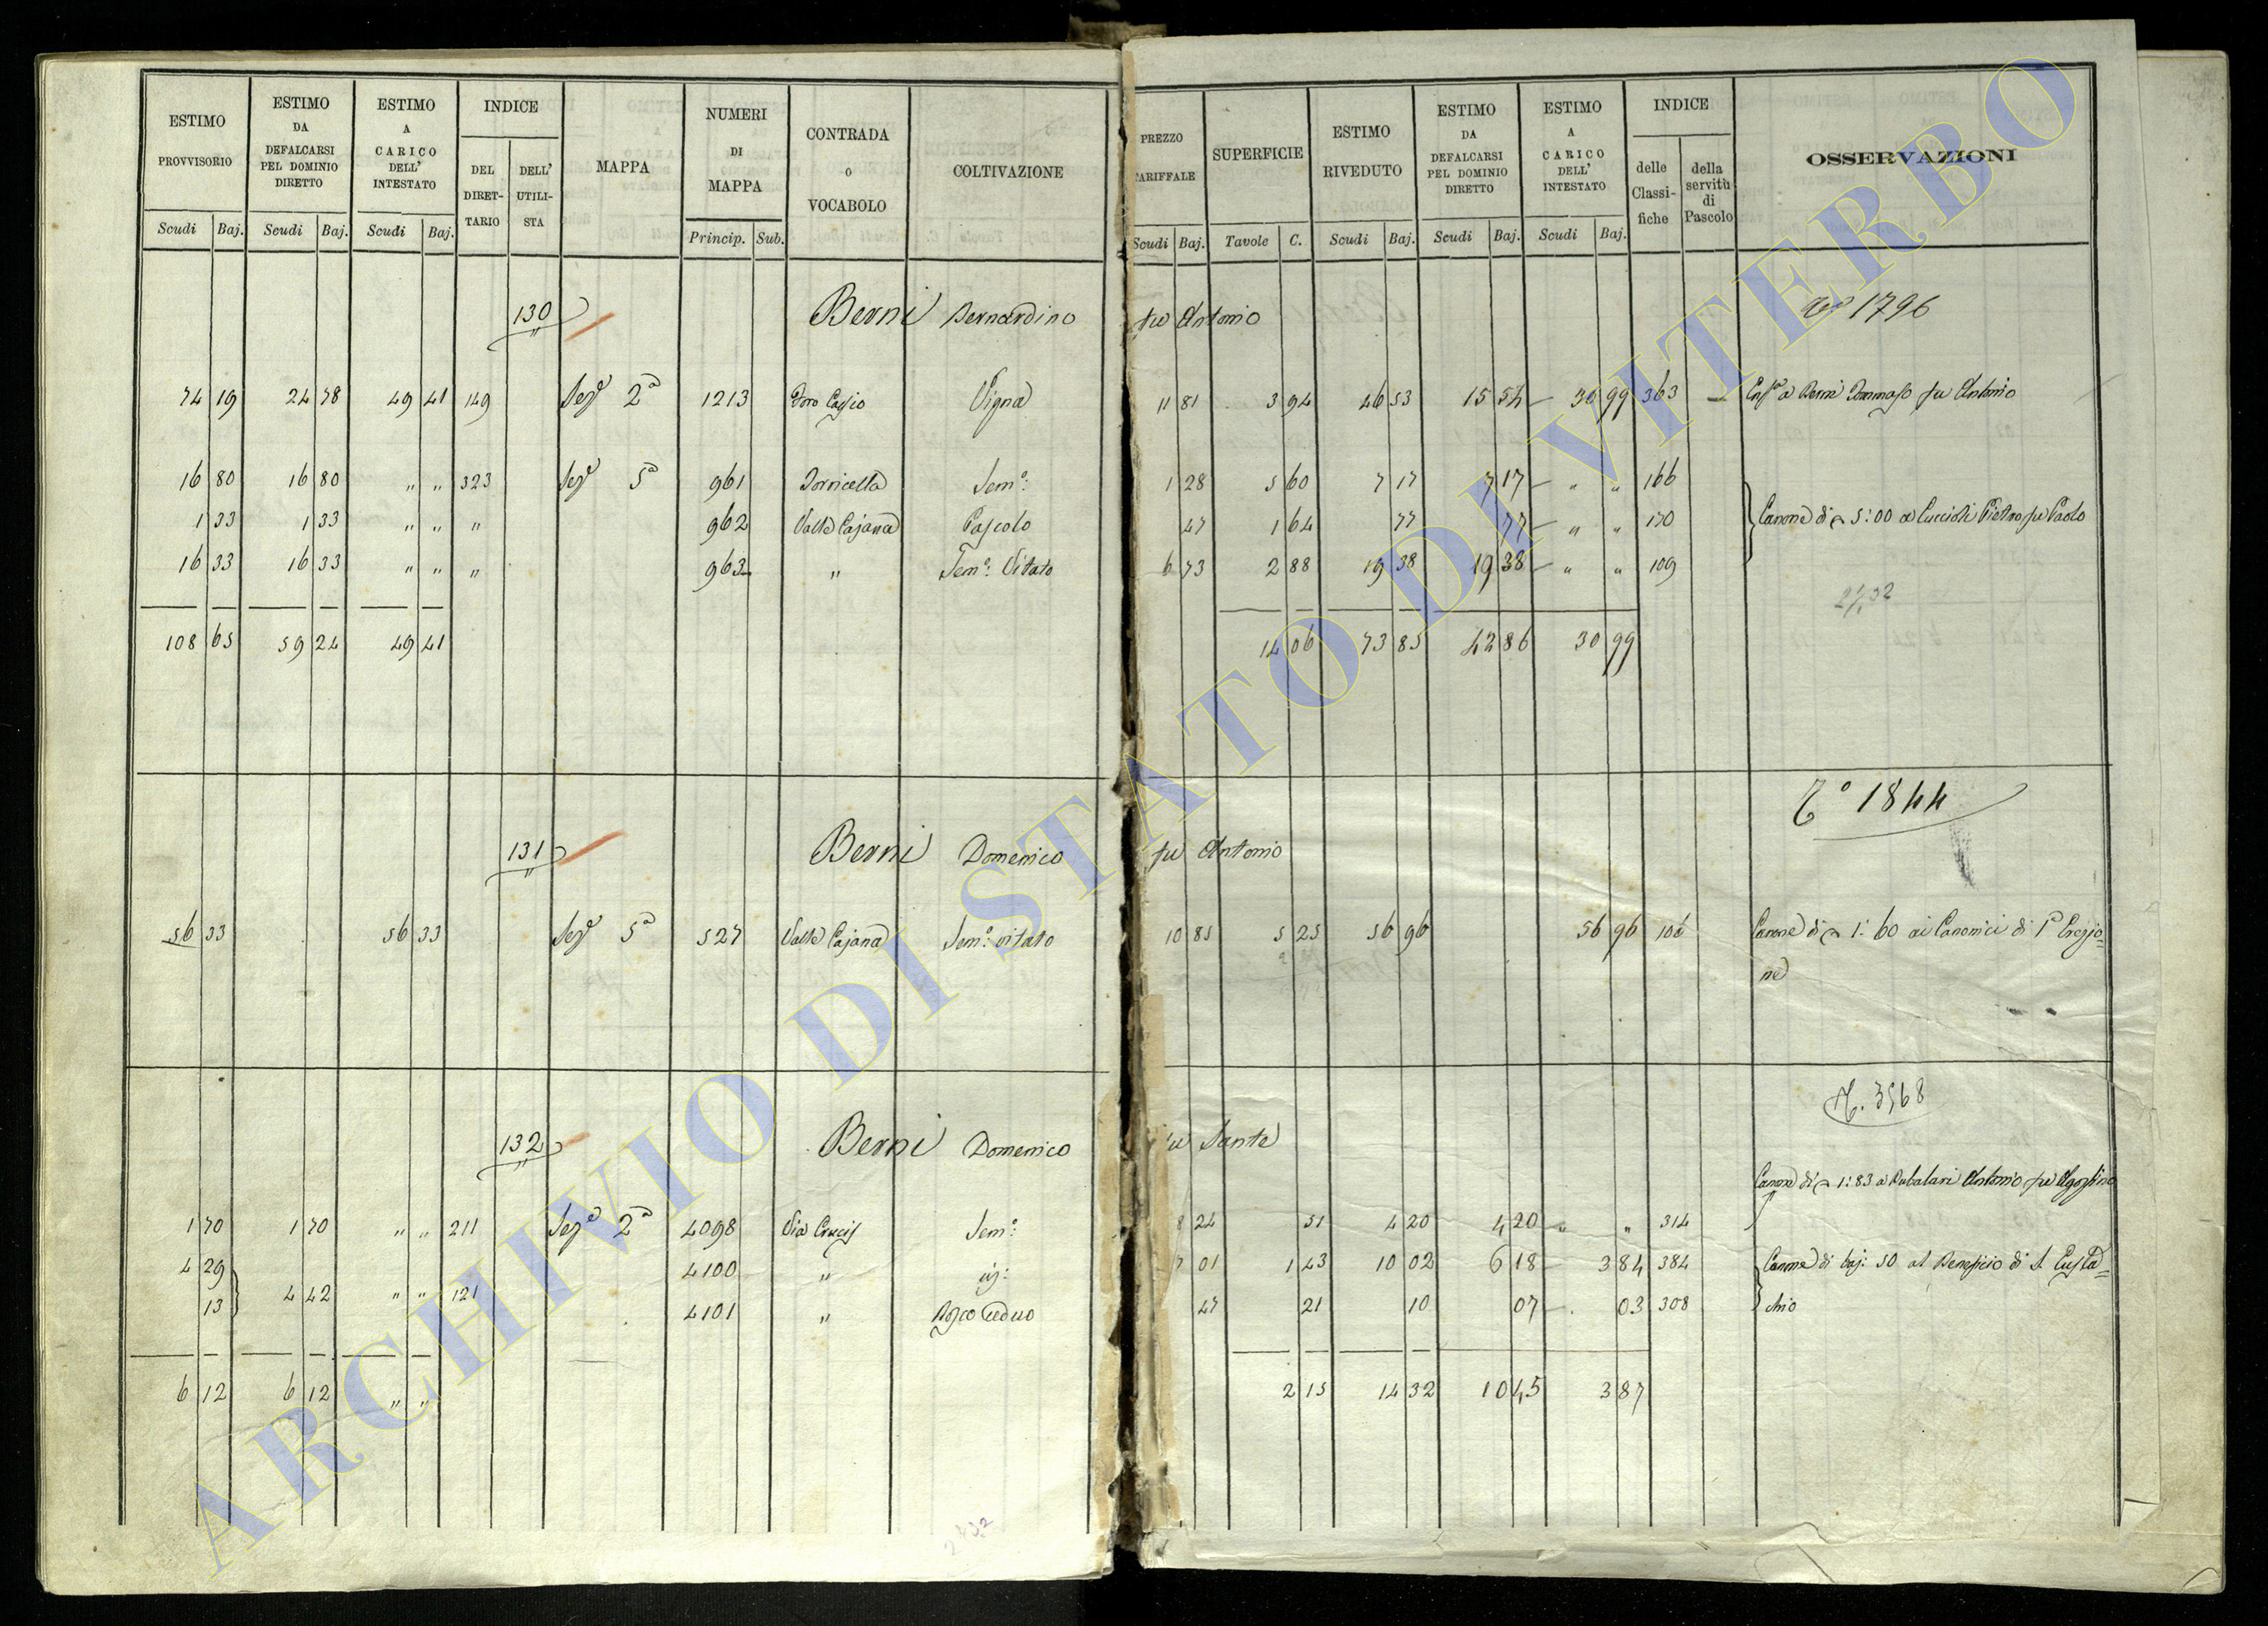 ESTIMO PROVVISORIO Scudi Baj. | ESTIMO DA DEFALCARSI PEL DOMINIO DIRETTO Scudi Baj. | ESTIMO A CARICO DELL' INTESTATO Scudi Baj. | INDICE DEL DIRETTARIO DELL' UTILISTA | MAPPA | NUMERI DI MAPPA Princip. Sub. | CONTRADA O VOCABOLO | COLTIVAZIONE | PREZZO TARIFFALE Scudi Baj. | SUPERFICIE Tavole C. | ESTIMO RIVEDUTO Scudi Baj. | ESTIMO DA DEFALCARSI PEL DOMINIO DIRETTO Scudi Baj. | ESTIMO A CARICO DELL' INTESTATO Scudi Baj. | INDICE delle Classifiche della servitù di Pascolo | OSSERVAZIONI
130 Berni Bernardino fu Antonio 1796
74 19 24 78 49 41 149 Sez.e 2a 1213 Cassio Vigna 11 81 3 94 46 53 15 54 30 99 363 a Berni Tommaso fu Antonio
16 80 16 80 " " 323 Sez.e 5a 961 Torricella Sem.o 1 28 5 60 7 17 7 17 " " 166
1 33 1 33 " " " 962 Valle Cajana Pascolo 47 1 64 77 77 " " 170 Canone di 5:00 a Cuccioli Pietro fu Paolo
16 33 16 33 " " " 963 " Sem.o Vitato 6 73 2 88 19 38 19 38 " " 109
108 65 59 24 49 41 14 06 73 85 42 86 30 99
T.o 1844
131 Berni Domenico fu Antonio
56 33 56 33 Sez.e 5a 527 Valle Cajana Sem.o vitato 10 85 5 25 56 96 56 96 106 Canone di 1:60 ai Canonici di 1a Erezio=
ne
3568
132 Berni Domenico fu Sante
Canone di 1:83 a Antonio fu Agostino
1 70 1 70 " " 211 Sez.e 2a 4098 Via Crucis Sem.o 8 24 51 4 20 4 20 " " 314
4 29 4100 " 7 01 1 43 10 02 6 18 3 84 384 Canone di baj: 50 al Beneficio di S. Eusta=
13 4 42 " " 121 4101 " Bosco Ceduo 47 21 10 07 03 308 chio
6 12 6 12 " " 2 15 14 32 10 45 3 87
ARCHIVIO DI STATO DI VITERBO